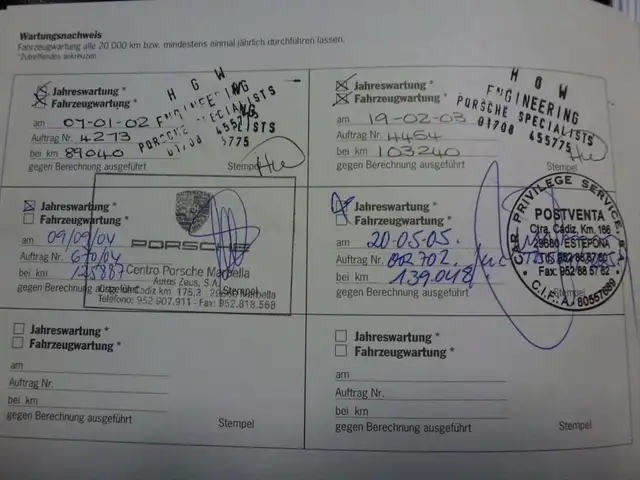 Wartungsnachweis
Fahrzeugwartung alle 20 000 km bzw. mindestens einmal jährlich durchführen lassen.
*Zutreffendes ankreuzen
Jahreswartung *
Fahrzeugwartung *
am 07-01-02
Auftrag Nr. 4273
bei km 89040
gegen Berechnung ausgeführt
Stempel
H G W
ENGINEERING
PORSCHE SPECIALISTS
01708 455775
Jahreswartung *
Fahrzeugwartung *
am 19-02-03
Auftrag Nr. 4454
bei km 103240
gegen Berechnung ausgeführt
Stempel
H G W
ENGINEERING
PORSCHE SPECIALISTS
01708 455775
Jahreswartung *
Fahrzeugwartung *
am 09/09/04
Auftrag Nr. 670/04
bei km 125887
gegen Berechnung ausgeführt
Stempel
PORSCHE
Centro Porsche Marbella
Autos Zeus, S.A.
Ctra. de Cádiz km. 175,3 Marbella
Teléfono: 952.907.911 - Fax: 952.818.568
Jahreswartung *
Fahrzeugwartung *
am 20-05-05.
Auftrag Nr.
bei km 139.048
gegen Berechnung ausgeführt
Stempel
CAR PRIVILEGE SERVICE, S.A.
POSTVENTA
Ctra. Cádiz, Km. 166
29680 ESTEPONA
Fax: 952 88 57 82
C.I.F. A 80557689
Jahreswartung *
Fahrzeugwartung *
am
Auftrag Nr.
bei km
gegen Berechnung ausgeführt
Stempel
Jahreswartung *
Fahrzeugwartung *
am
Auftrag Nr.
bei km
gegen Berechnung ausgeführt
Stempel